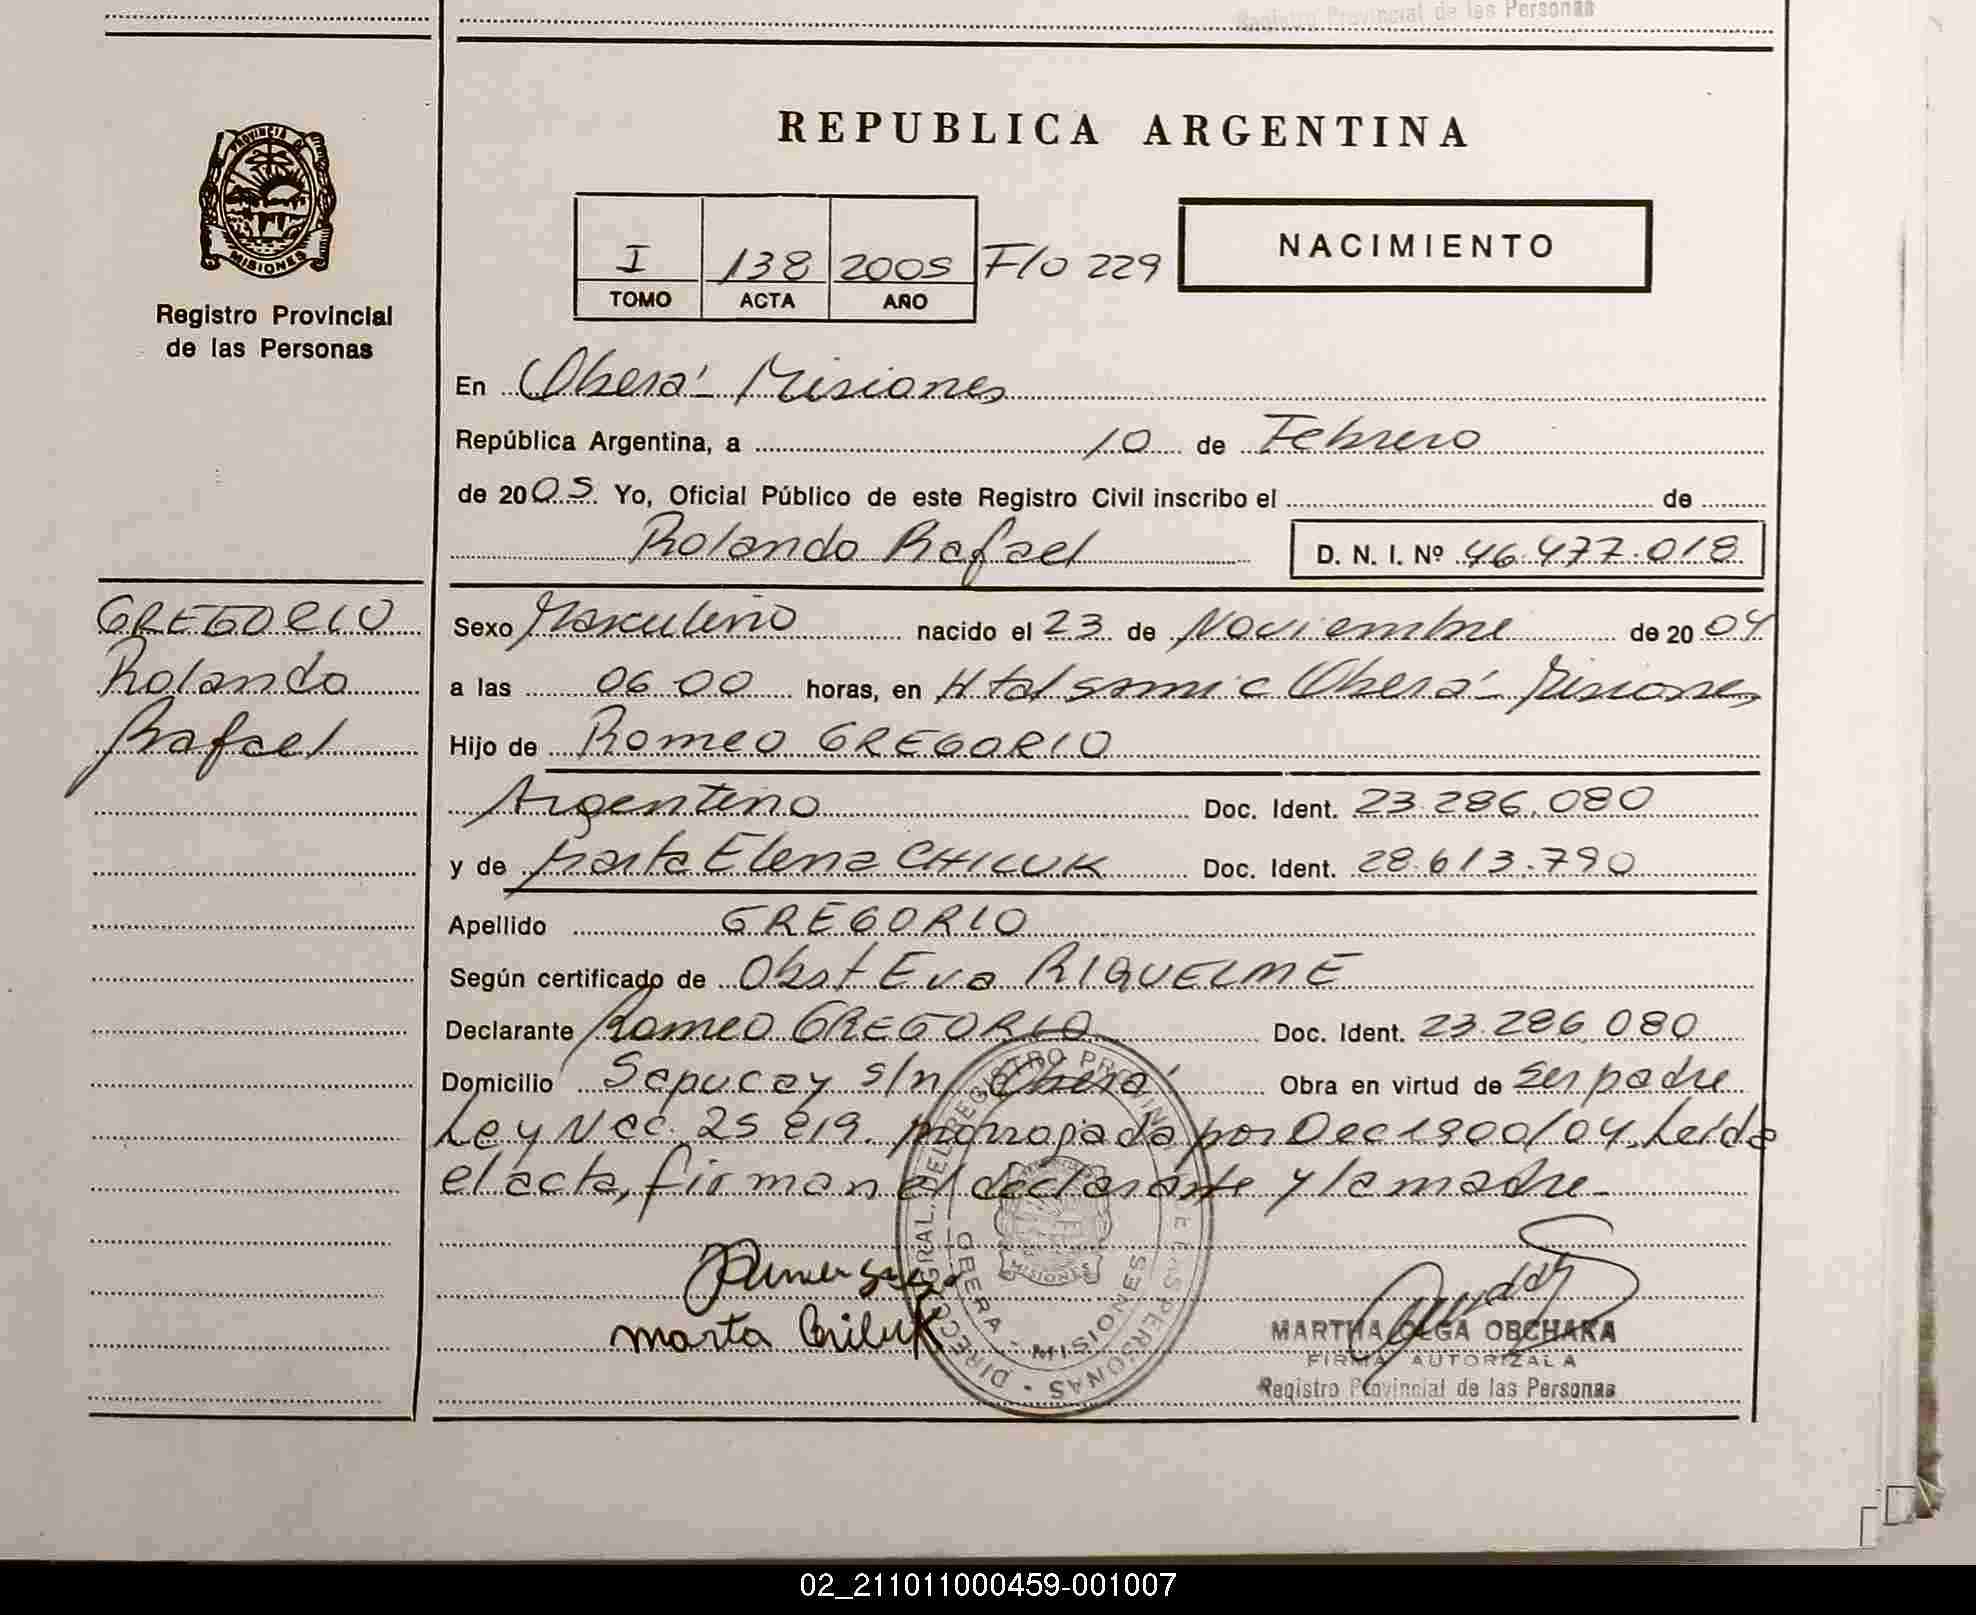 Registro Provincial de las Personas
PROVINCIA DE
MISIONES
Registro Provincial
de las Personas
REPUBLICA ARGENTINA
I 138 2005 F/o 229
TOMO ACTA AÑO
NACIMIENTO
En Oberá - Misiones
República Argentina, a 10 de Febrero
de 2005 Yo, Oficial Público de este Registro Civil inscribo el de
Rolando Rafael D. N. I. Nº 46.477.018
GREGORIO
Rolando
Rafael
Sexo Masculino nacido el 23 de Noviembre de 2004
a las 06 00 horas, en Htal Samic Oberá - Misiones
Hijo de Romeo GREGORIO
Argentino Doc. Ident. 23.286.080
y de Marta Elena CHILUK Doc. Ident. 28.613.790
Apellido GREGORIO
Según certificado de Obst Eva RIQUELME
Declarante Romeo GREGORIO Doc. Ident. 23.286.080
Domicilio Sapucay s/n Oberá Obra en virtud de ser padre
Ley Nac. 25 819. prorrogada por Dec 1900/04. Leída
el acta, firman el declarante y la madre
marta Chiluk
DIRECC. GRAL. DEL REGISTRO PROVINCIAL DE LAS PERSONAS
OBERA - MISIONES
MISIONES
MARTHA OLGA OBCHAKA
FIRMA AUTORIZADA
Registro Provincial de las Personas
02_211011000459-001007